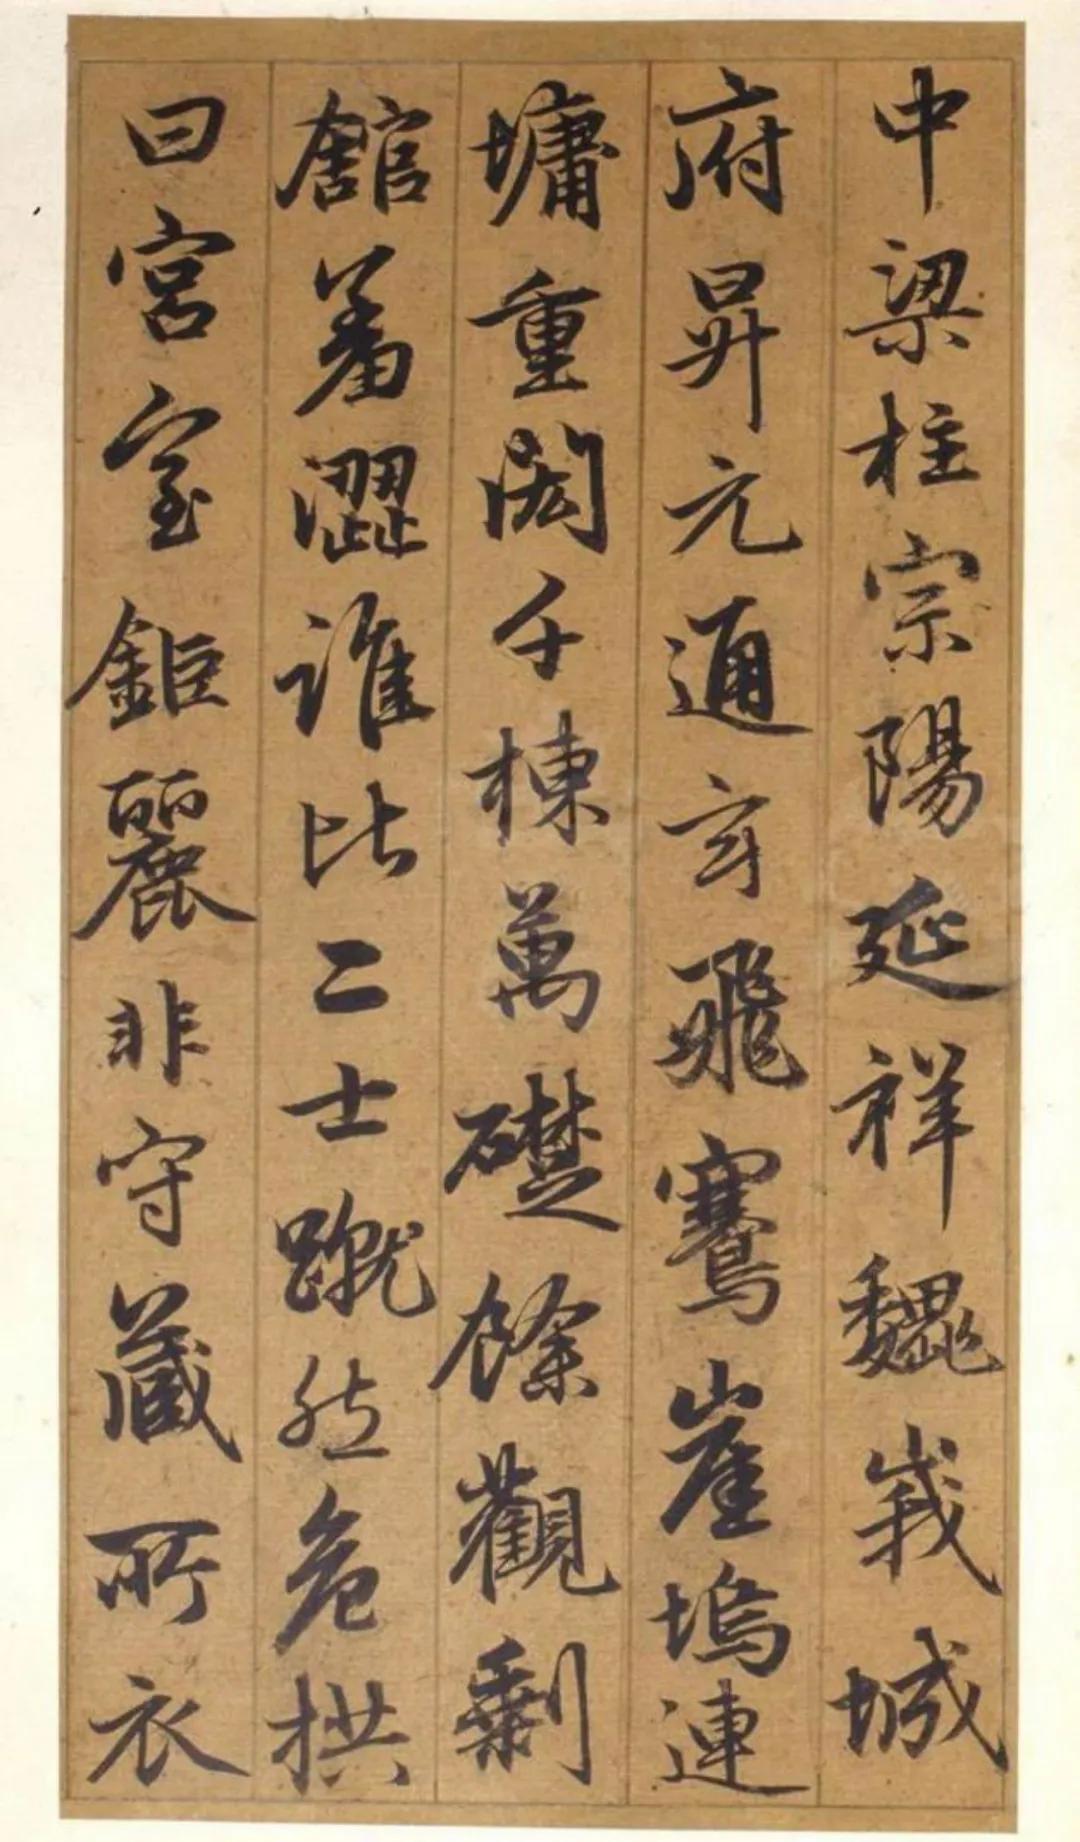 中梁柱宗陽延祥魏峩城
府昇元通玄飛騫崖塢連
墉重閎千棟萬礎餘觀剩
館羞澀誰比二士蹴然危拱
曰宮室鉅麗非守藏所衣